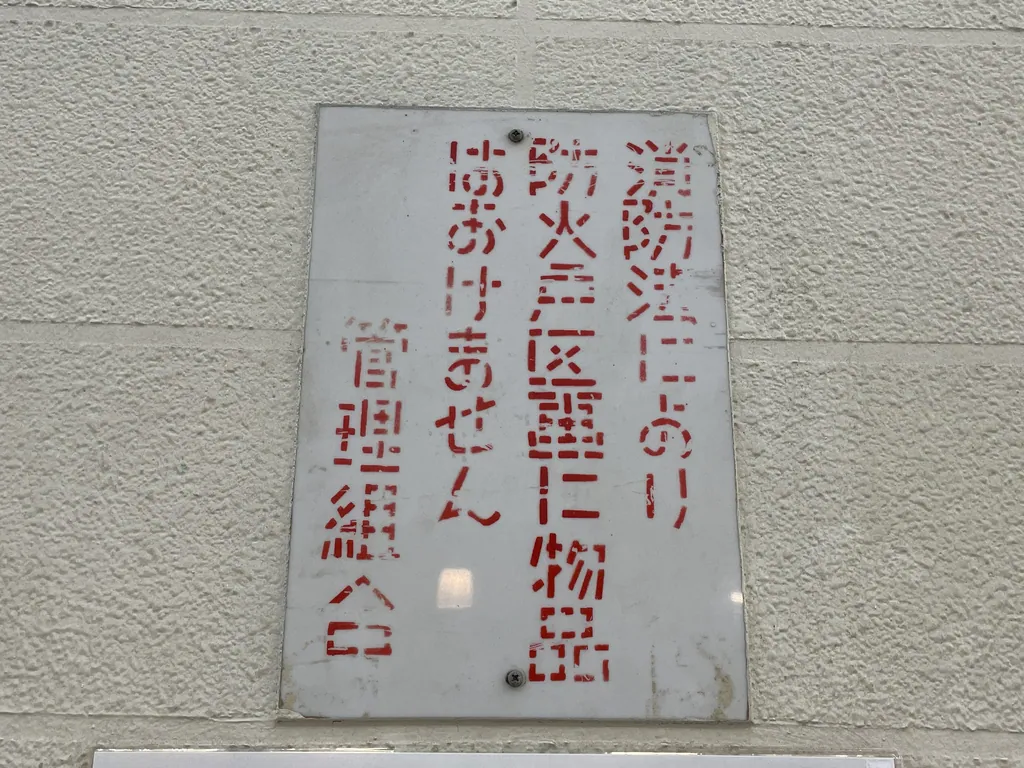 消防法により
防火戸区画に物品
はおけません
管理組合